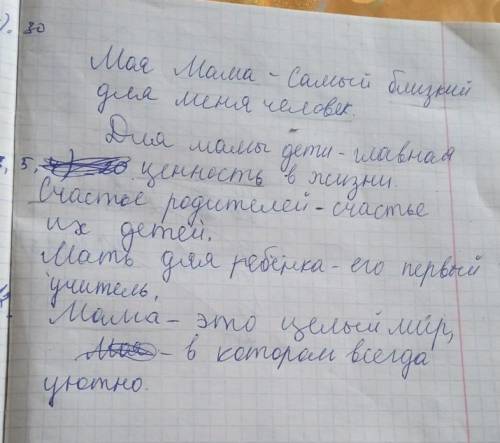 ). 30
Мая Мама - Самый близкий
для меня человек.
Для мамы дети - главная
5, ценность в жизни.
Счастье родителей - счастье
их детей.
Мать для ребёнка - его первый
учитель,
Мама - это целый мир,
- в котором всегда
уютно.